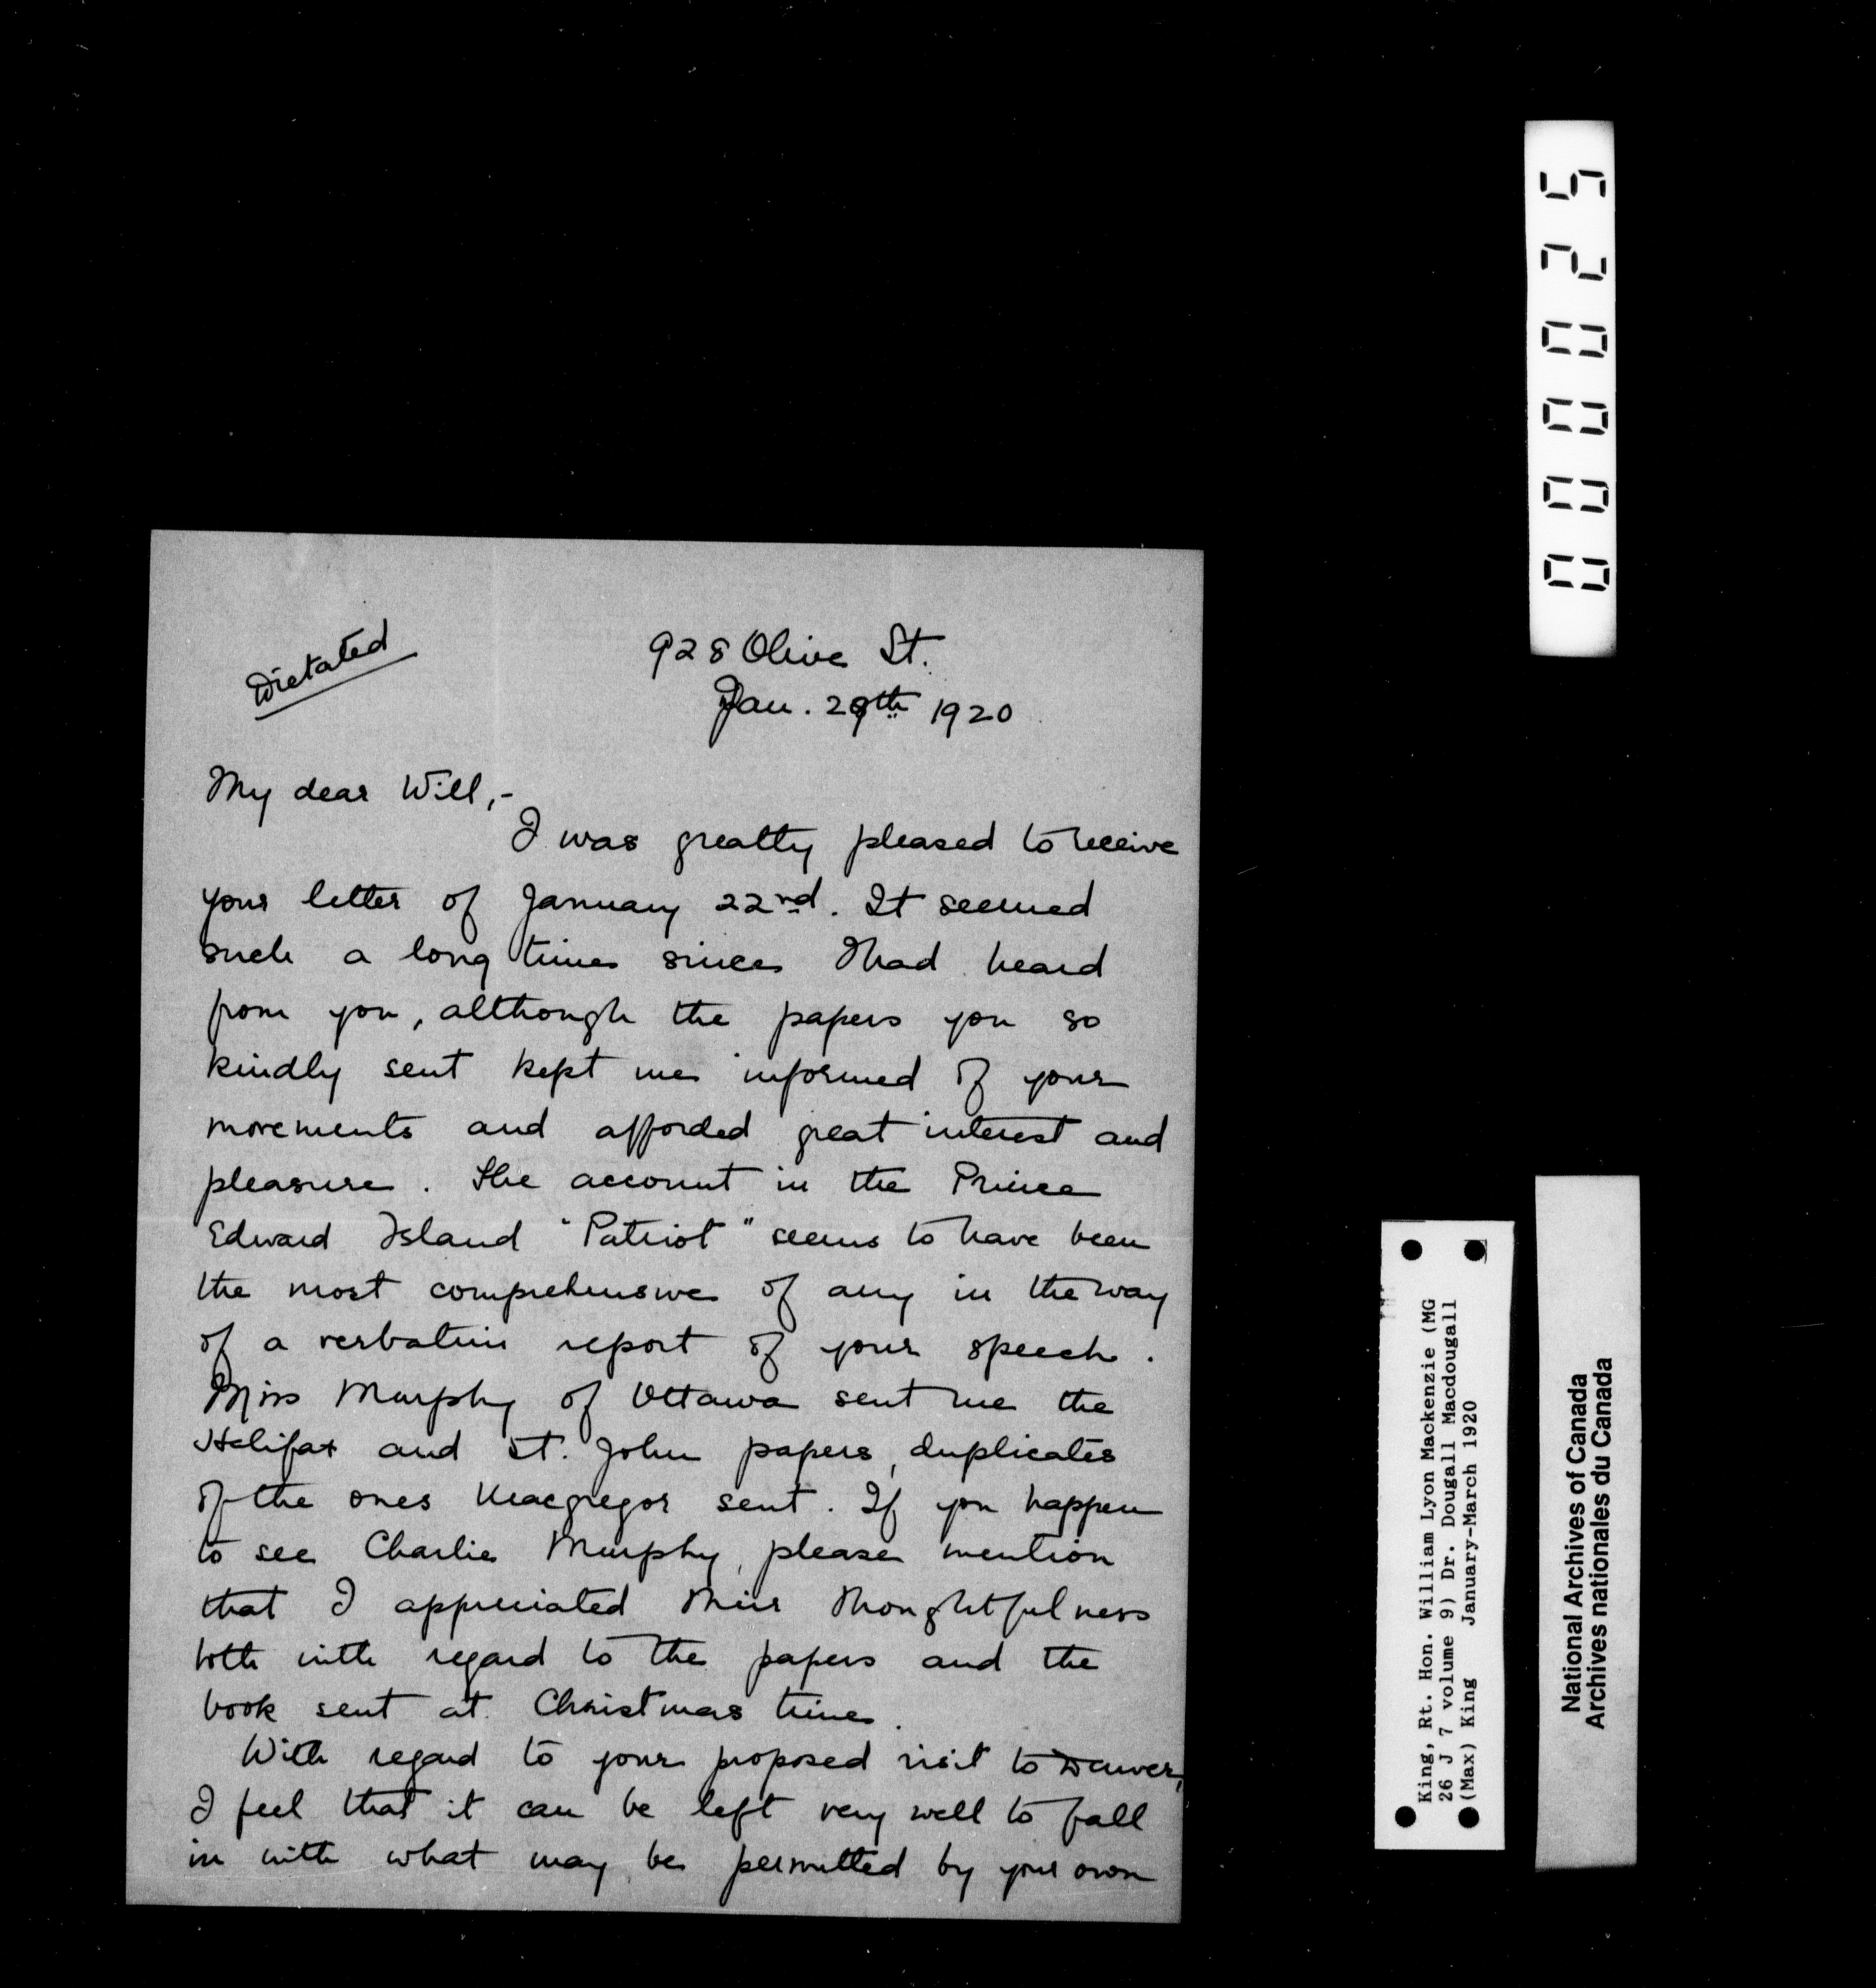 Dictated
928 Olive St.
Jan. 29th 1920
My dear Will,-
I was greatly pleased to receive
your letter of January 22nd. It seemed
such a long time since I had heard
from you, although the papers you so
kindly sent kept me informed of your
movements and afforded great interest and
pleasure. The account in the Prince
Edward Island "Patriot" seems to have been
the most comprehensive of any in the way
of a verbatim report of your speech.
Miss Murphy of Ottawa sent me the
Halifax and St. John papers, duplicates
of the ones Macgregor sent. If you happen
to see Charlie Murphy, please mention
that I appreciated their thoughtfulness
both with regard to the papers and the
book sent at Christmas time.
With regard to your proposed visit to Denver,
I feel that it can be left very well to fall
in with what may be permitted by your own
000025
King, Rt. Hon. William Lyon Mackenzie (MG
26 J 7 volume 9) Dr. Dougall Macdougall
(Max) King January-March 1920
National Archives of Canada
Archives nationales du Canada